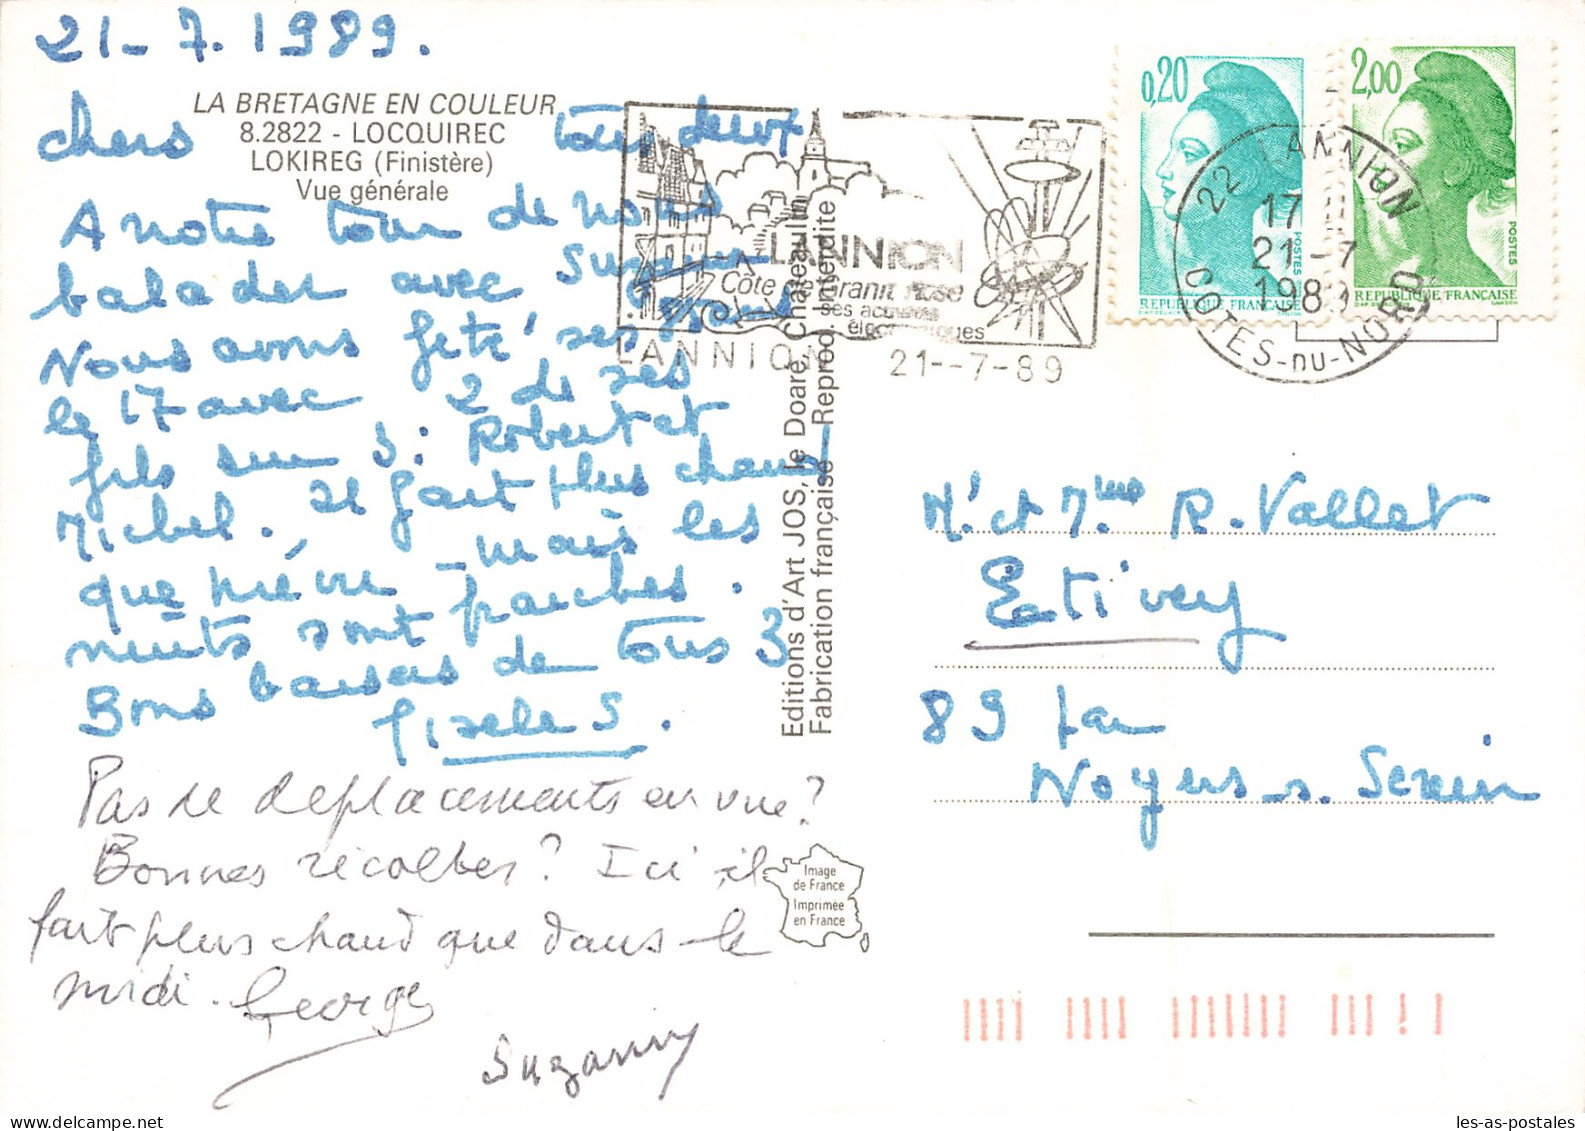 21-7.1989.
LA BRETAGNE EN COULEUR
8.2822 - LOCQUIREC
LOKIREG (Finistère)
Vue générale
chers tous deux
A notre tour de nous
balader avec Suzanne
Nous avons fêté ses
le 17 avec 2 de ses
fils sur 3: Robert et
Michel. Il fait plus chaud
que prévu - mais les
nuits sont fraîches.
Bons baisers de tous 3
Gisèle S.
Pas de déplacements en vue?
Bonnes récoltes? Ici il
fait plus chaud que dans le
midi. Georges
Suzanne
Editions d'Art JOS, le Doaré, Châteaulin
Fabrication française - Reprod. interdite
LANNION
Côte de granit rose
ses activités
électroniques
LANNION 21--7-89
0,20
POSTES
REPUBLIQUE FRANÇAISE
2,00
POSTES
REPUBLIQUE FRANÇAISE
22 LANNION
17 H
21 -7
1989
COTES-DU-NORD
M. et Mme R. Vallet
Etivey
89 par
Noyers s. Serein
Image
de France
Imprimée
en France
les-as-postales